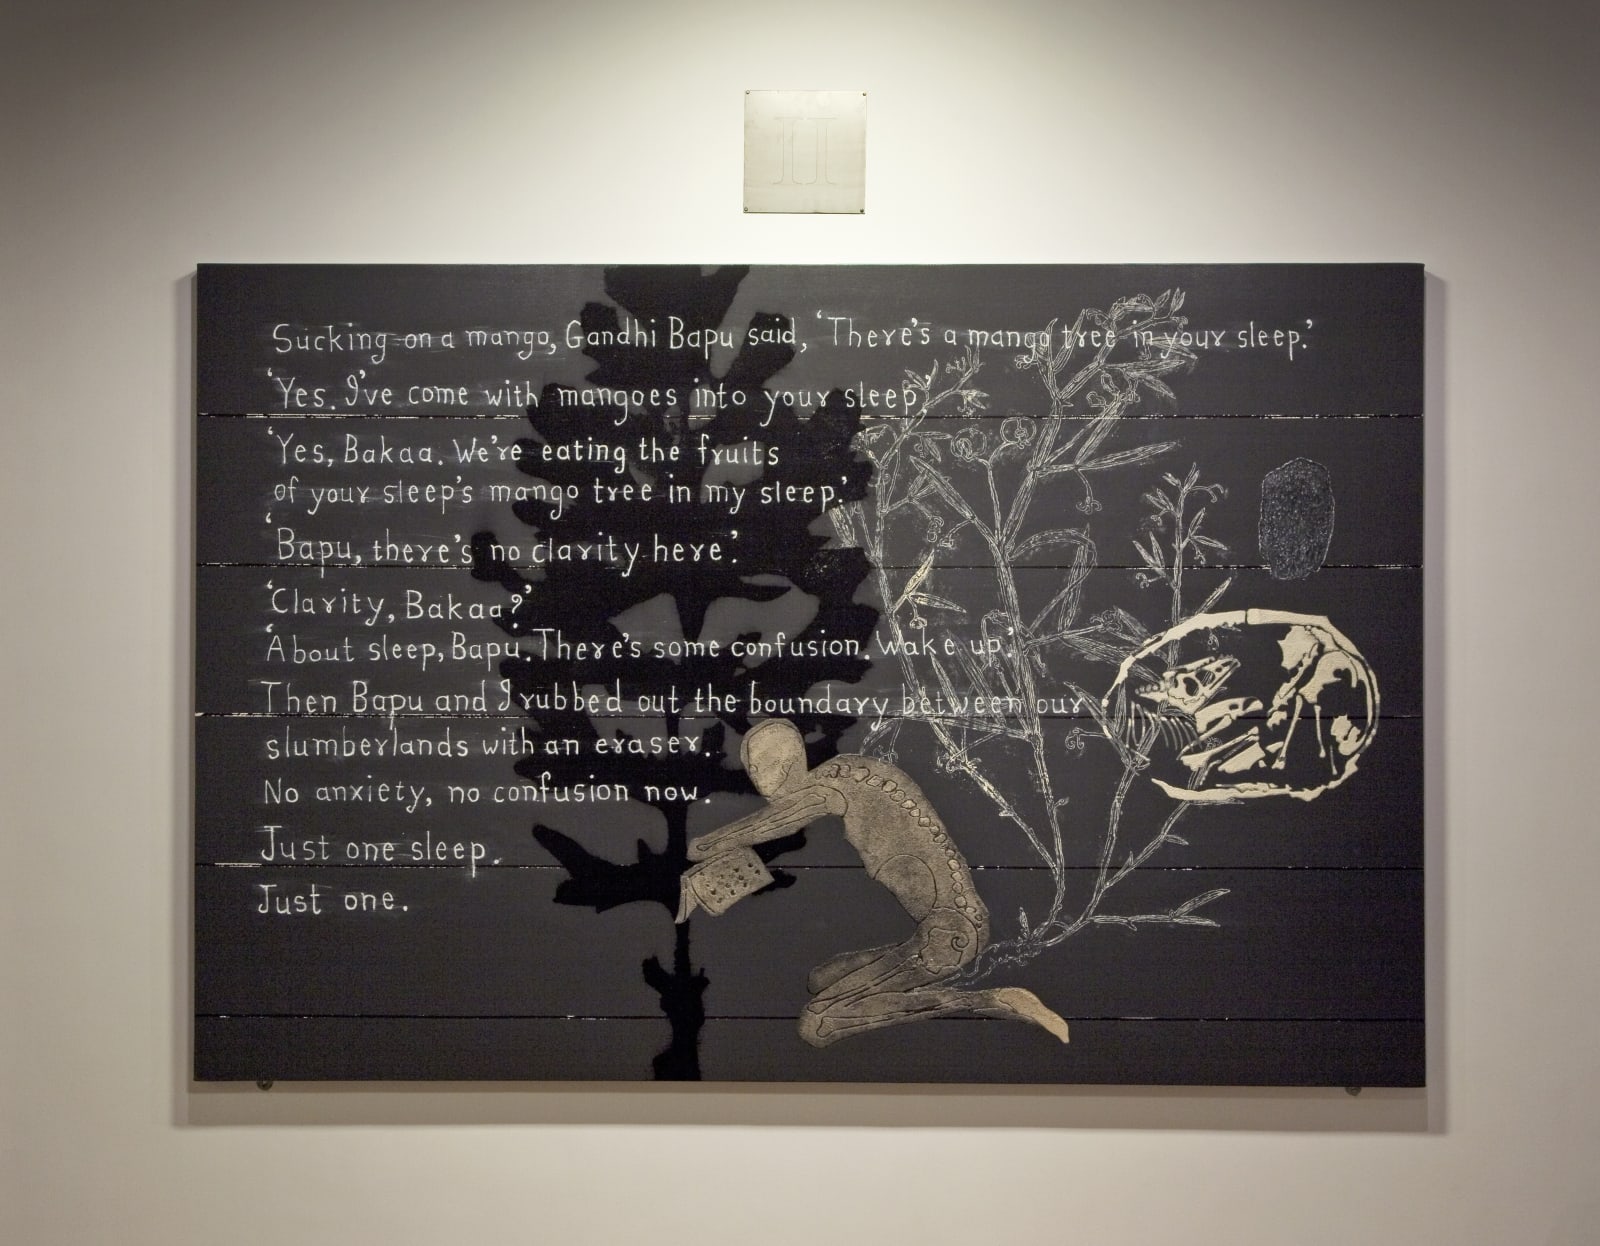 II
Sucking on a mango, Gandhi Bapu said, 'There's a mango tree in your sleep.'
'Yes. I've come with mangoes into your sleep,'
'Yes, Bakaa. We're eating the fruits
of your sleep's mango tree in my sleep.'
'Bapu, there's no clarity here.'
'Clarity, Bakaa?'
'About sleep, Bapu. There's some confusion. Wake up.'
Then Bapu and I rubbed out the boundary between our
slumberlands with an eraser.
No anxiety, no confusion now.
Just one sleep.
Just one.